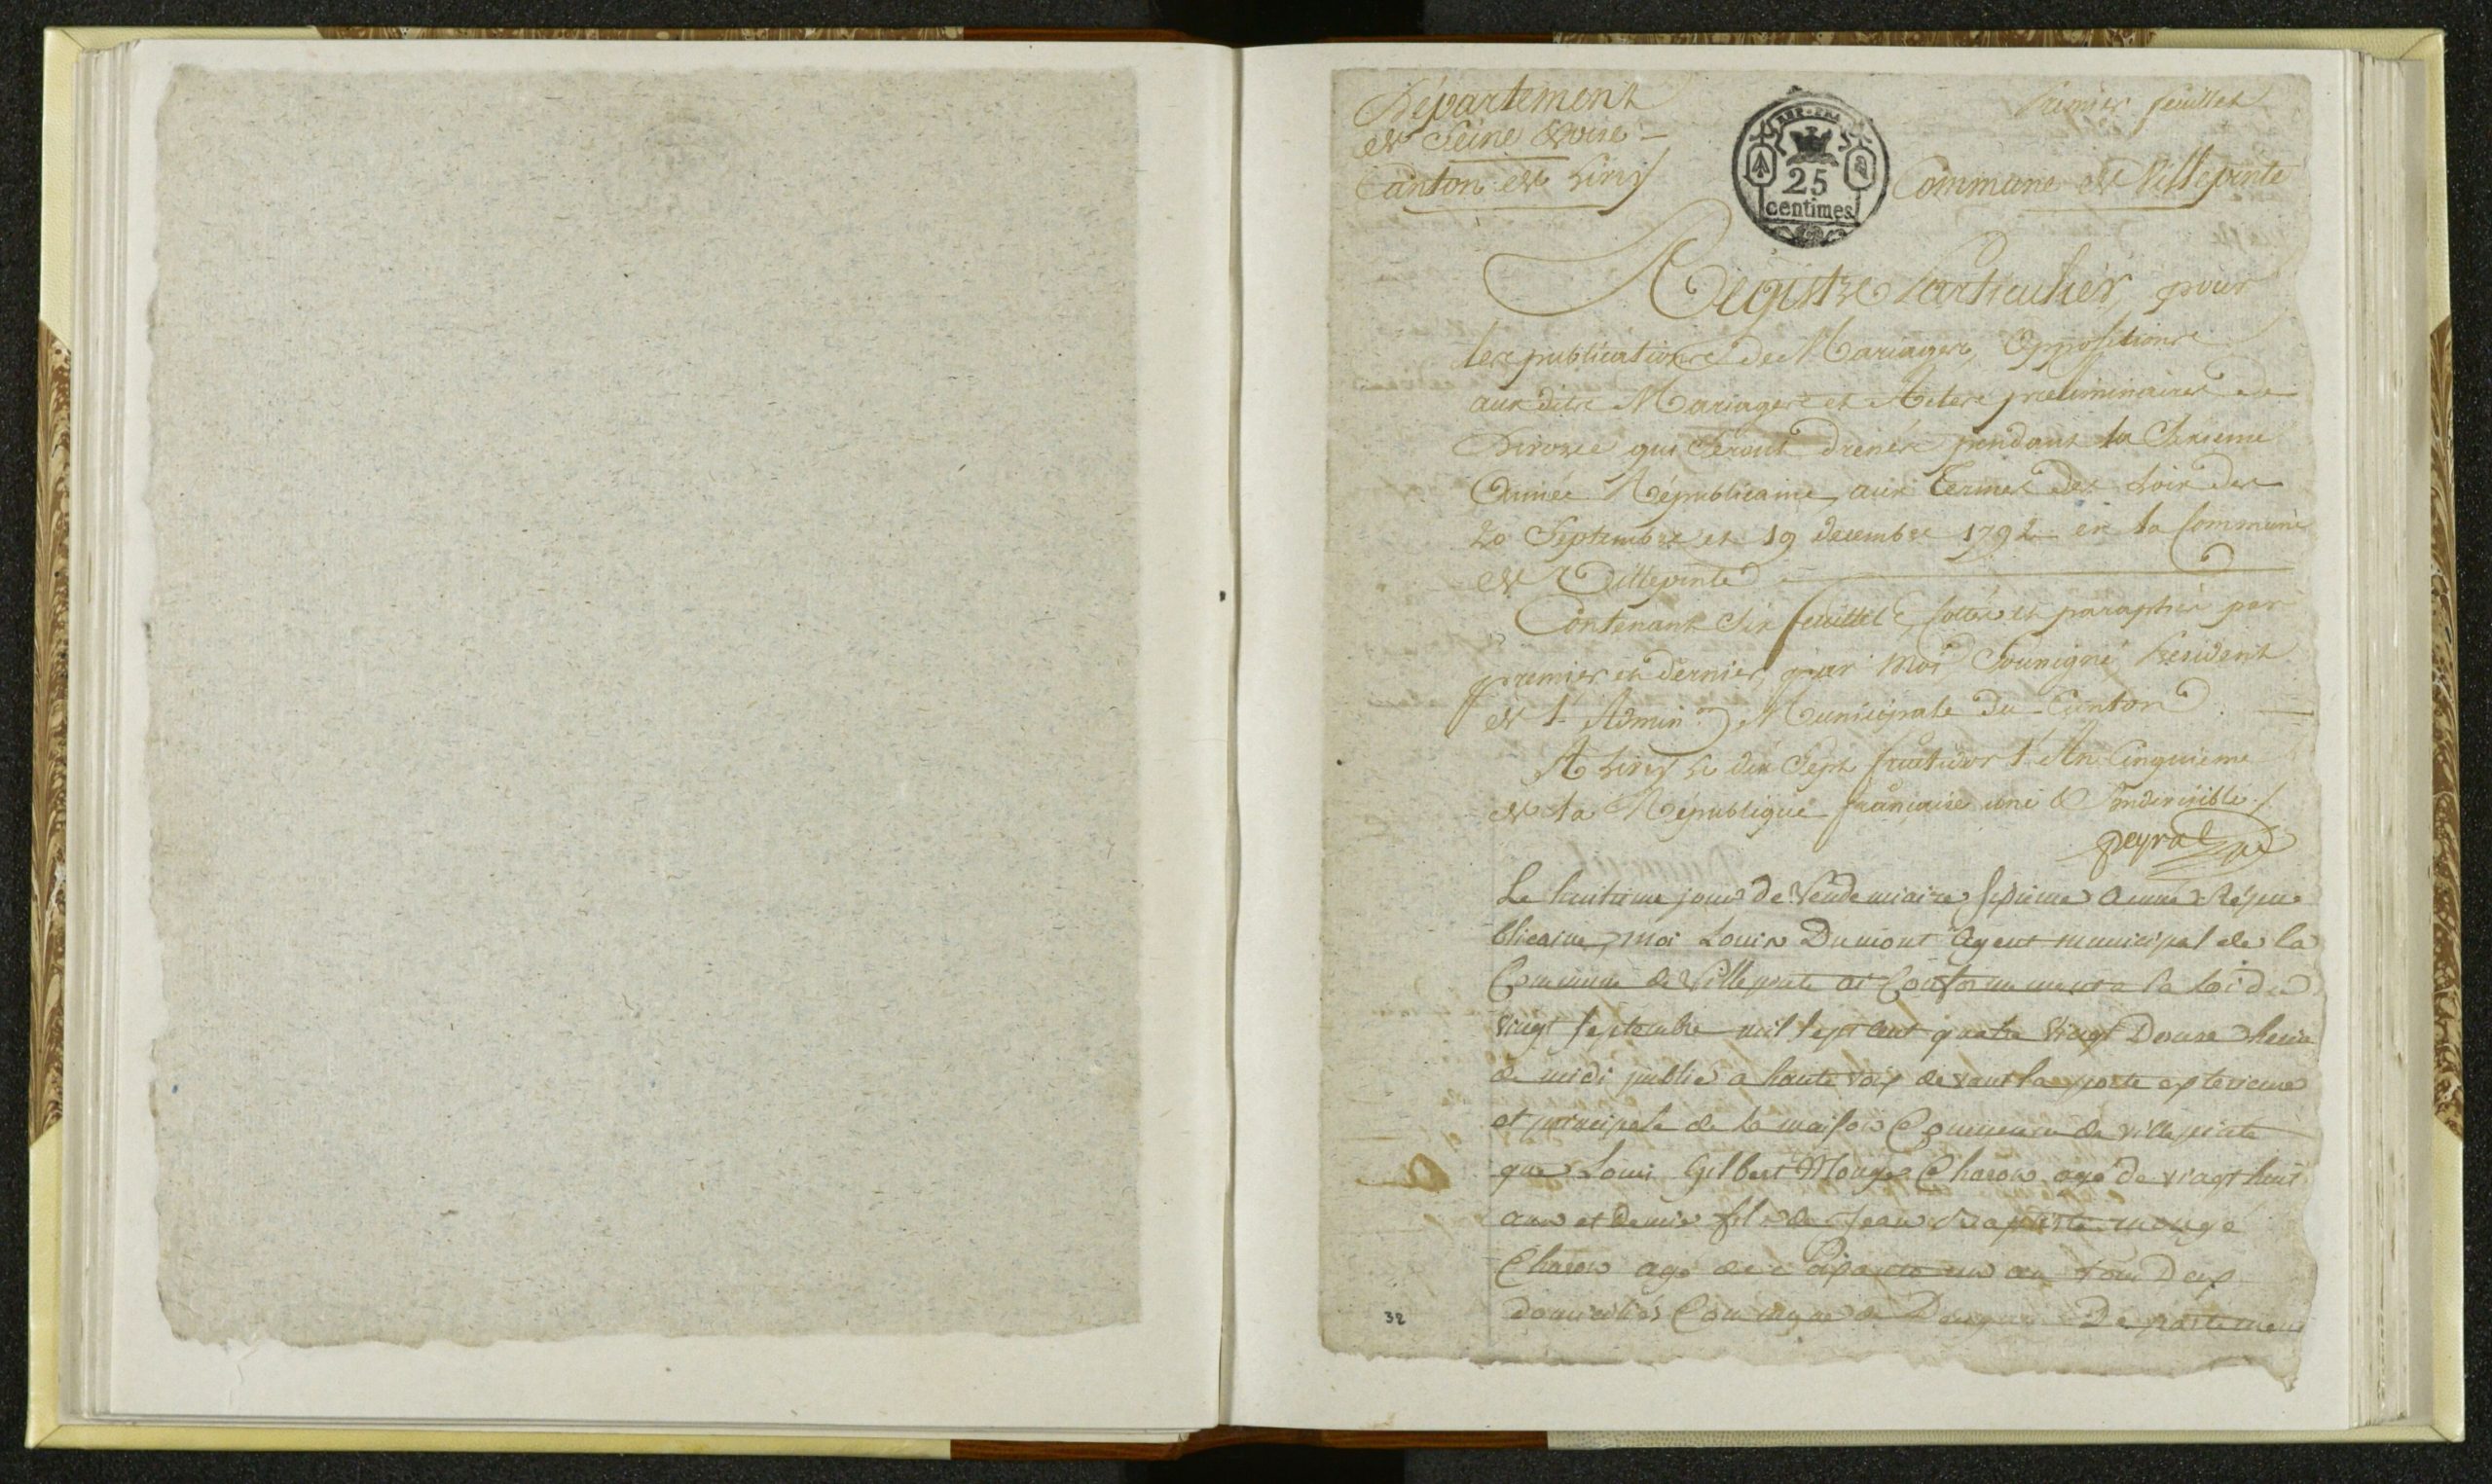 Département
de Seine & oise
Canton de Livry
Premier feuillet
REP. FRA
25
centimes
Commune de Villepinte
Registre Particulier, pour
les publications de Mariages, Oppositions
aux dits Mariages et Actes preliminaires de
Divorce qui seront dressés pendant la Sixieme
Année Républicaine, aux termes des Loix des
20 Septembre et 19 decembre 1792 en la Commune
de Villepinte
Contenant Six feuillets, cottés et paraphés par
premier et dernier, par moi Soussigné Président
de l'Admin.on Municipale du Canton
A Livry le dix Sept fructidor l'An Cinquieme
de la République française une & Indivisible./.
peyrat
Le huitieme jour de Vendemiaire septieme année Répu
blicaine, moi Louis Dumont Agent municipal de la
Commune de Villepinte ai Conformement a la loi du
vingt septembre mil sept cent quatre vingt Douze heure
de midi publié a haute voix devant la porte exterieure
et principale de la maison Commune de villepinte
que Louis Gilbert Mongé Charon agé de vingt huit
ans et demie fils de Jean Baptiste mongé
Charon agé de un an tous Deux
domiciliés Commune de Departement
32